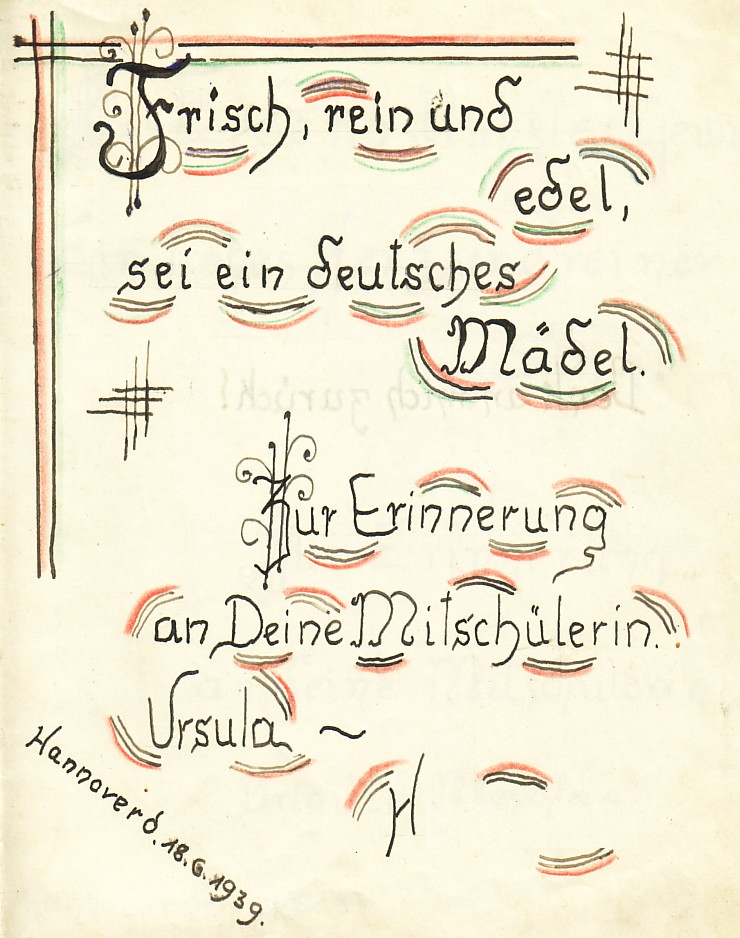 Frisch, rein und
edel,
sei ein deutsches
Mädel.
Zur Erinnerung
an Deine Mitschülerin.
Ursula ~
H
Hannover d. 18.6.1939.